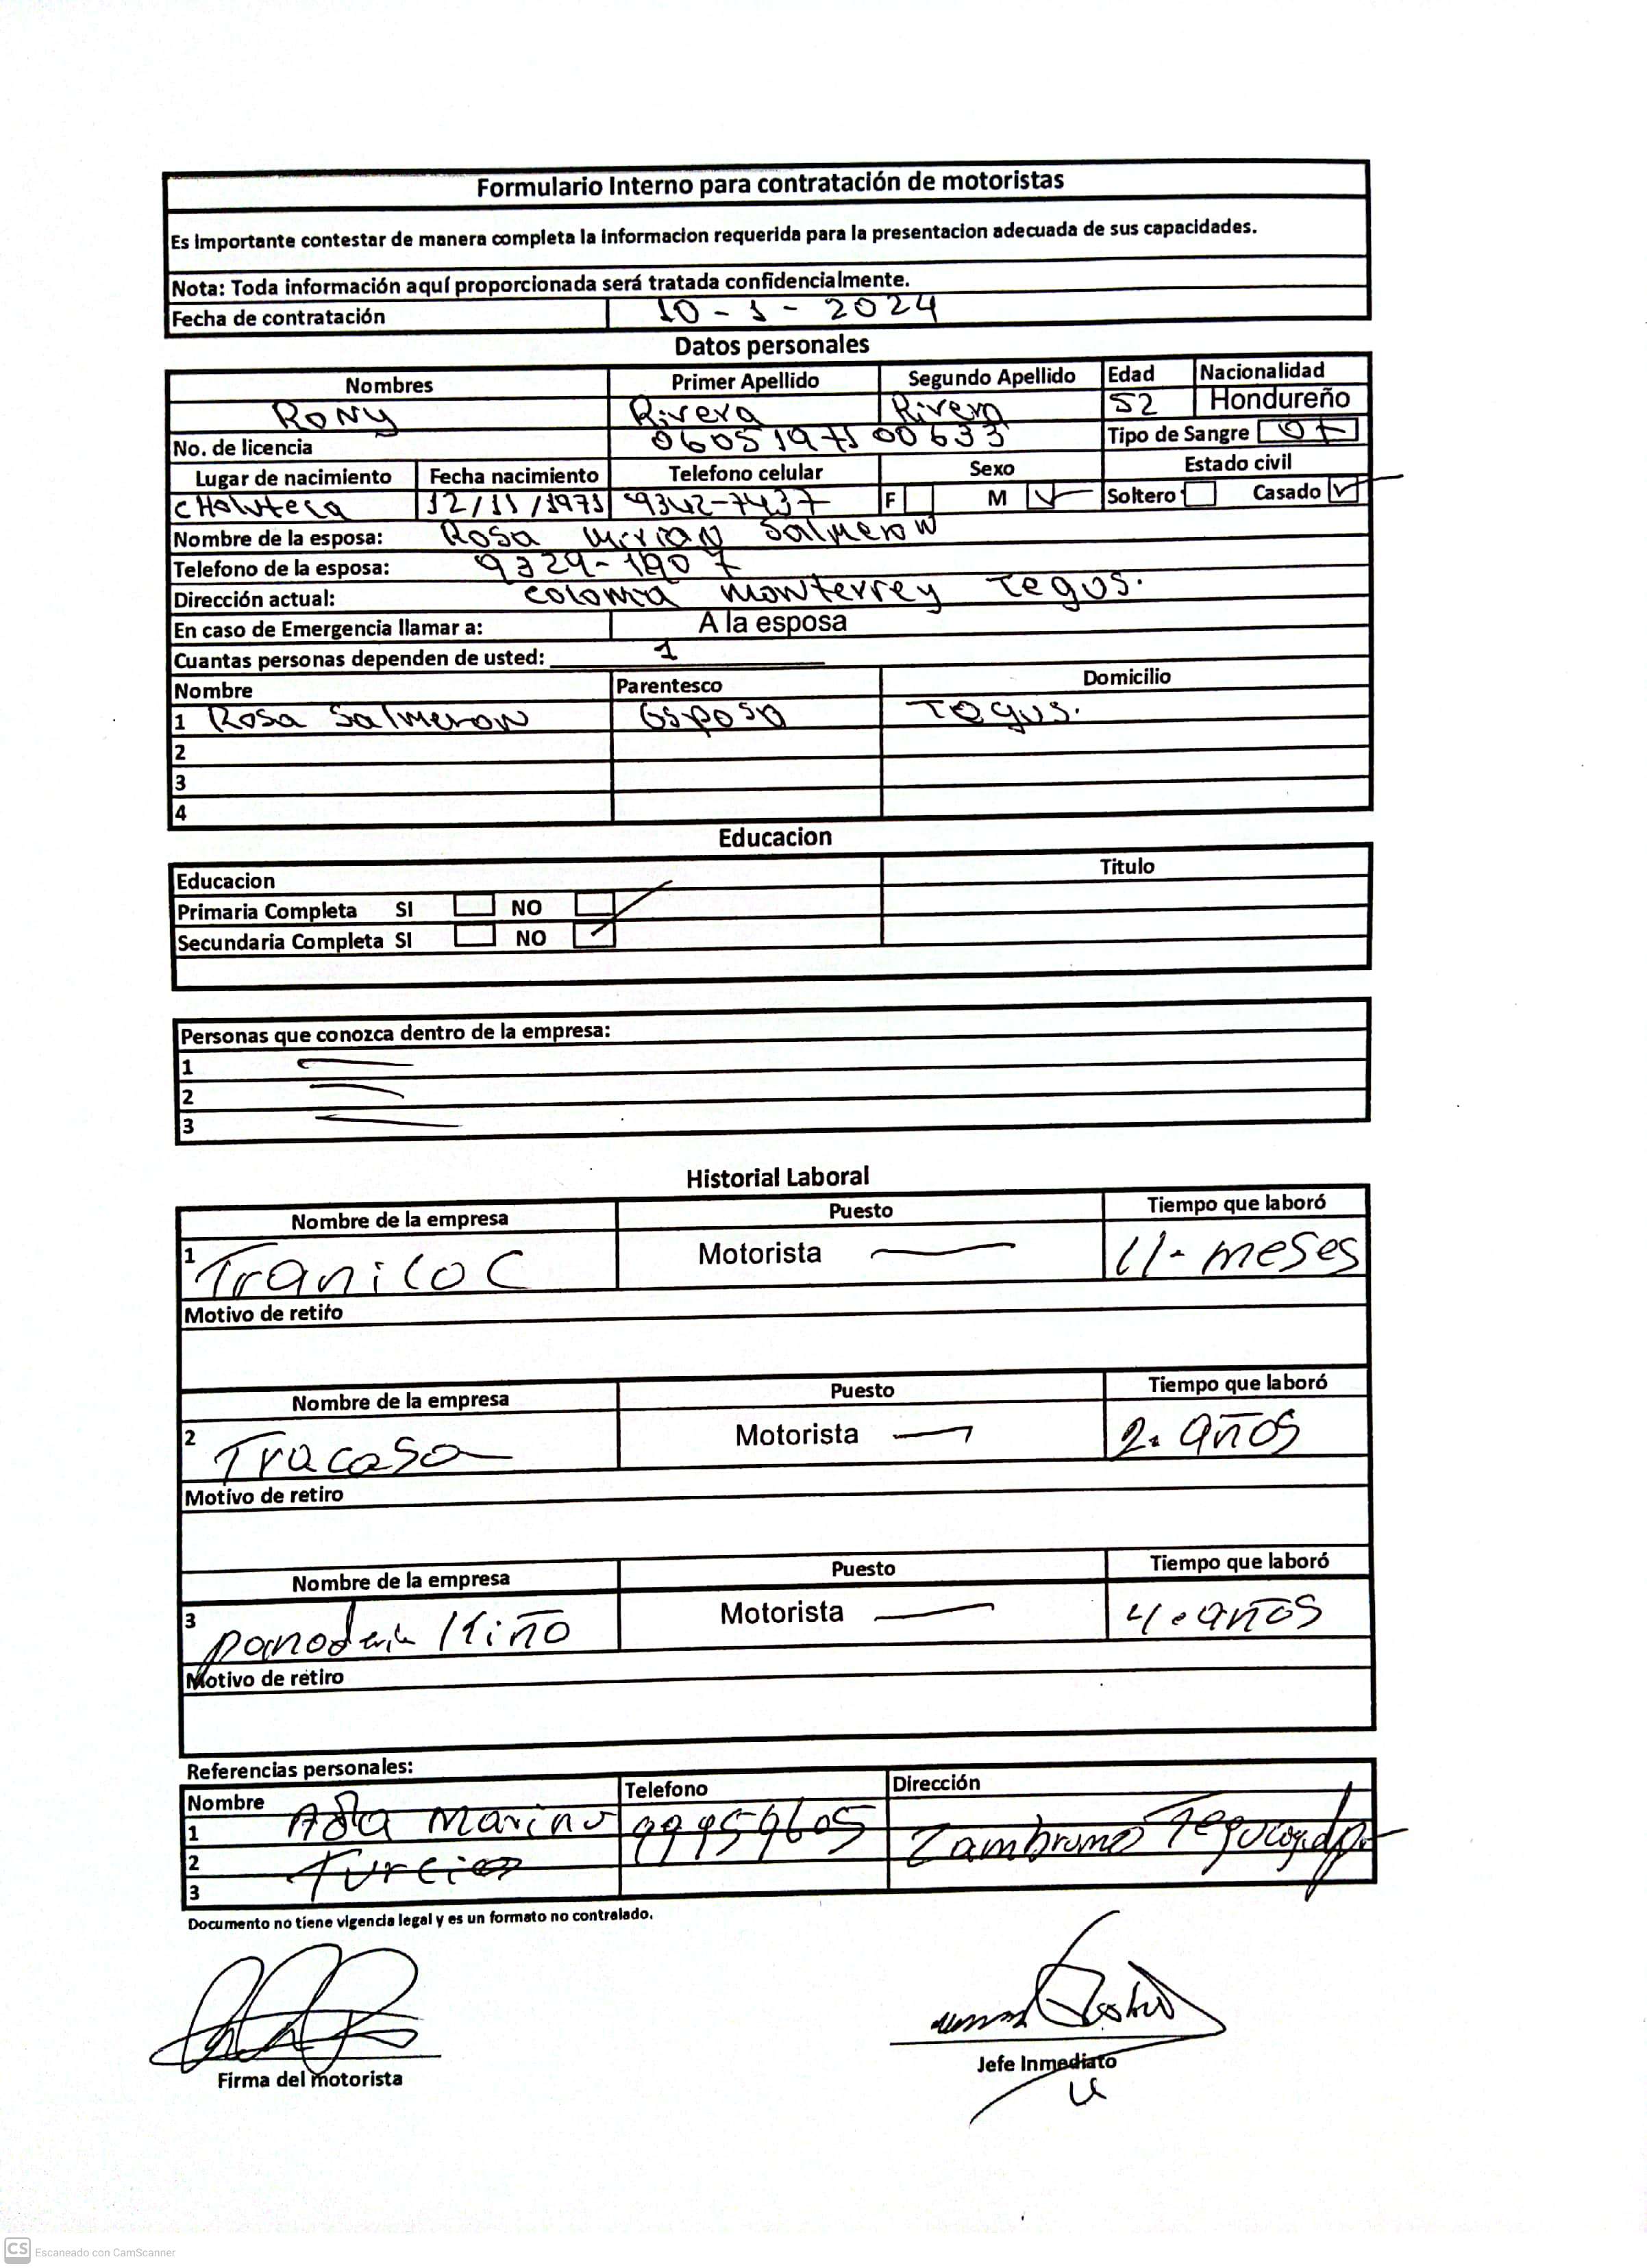 Formulario Interno para contratación de motoristas
Es Importante contestar de manera completa la Informacion requerida para la presentacion adecuada de sus capacidades.
Nota: Toda información aquí proporcionada será tratada confidencialmente.
Fecha de contratación 10 - 1 - 2024
Datos personales
Nombres Primer Apellido Segundo Apellido Edad Nacionalidad
Rony Rivera Rivera 52 Hondureño
No. de licencia 0605197100633 Tipo de Sangre O+
Lugar de nacimiento Fecha nacimiento Telefono celular Sexo Estado civil
CHoluteca 12/11/1971 9342-7437 F M Soltero Casado
Nombre de la esposa: Rosa Mirian Salmeron
Telefono de la esposa: 9329-1907
Dirección actual: Colonia Monterrey Tegus.
En caso de Emergencia llamar a: A la esposa
Cuantas personas dependen de usted: 1
Nombre Parentesco Domicilio
1 Rosa Salmeron Esposa Tegus.
2
3
4
Educacion
Educacion Titulo
Primaria Completa SI NO
Secundaria Completa SI NO
Personas que conozca dentro de la empresa:
1
2
3
Historial Laboral
Nombre de la empresa Puesto Tiempo que laboró
1 Tranilo C Motorista 11- meses
Motivo de retiro
Nombre de la empresa Puesto Tiempo que laboró
2 Tracasa Motorista 2. años
Motivo de retiro
Nombre de la empresa Puesto Tiempo que laboró
3 panaderia Kiño Motorista 4. años
Motivo de retiro
Referencias personales:
Nombre Telefono Dirección
1 Ada Marina 99959605 Zambrano Tegucigalpa
2 Turcios
3
Documento no tiene vigencia legal y es un formato no contralado.
Firma del motorista
Jefe Inmediato
CS Escaneado con CamScanner